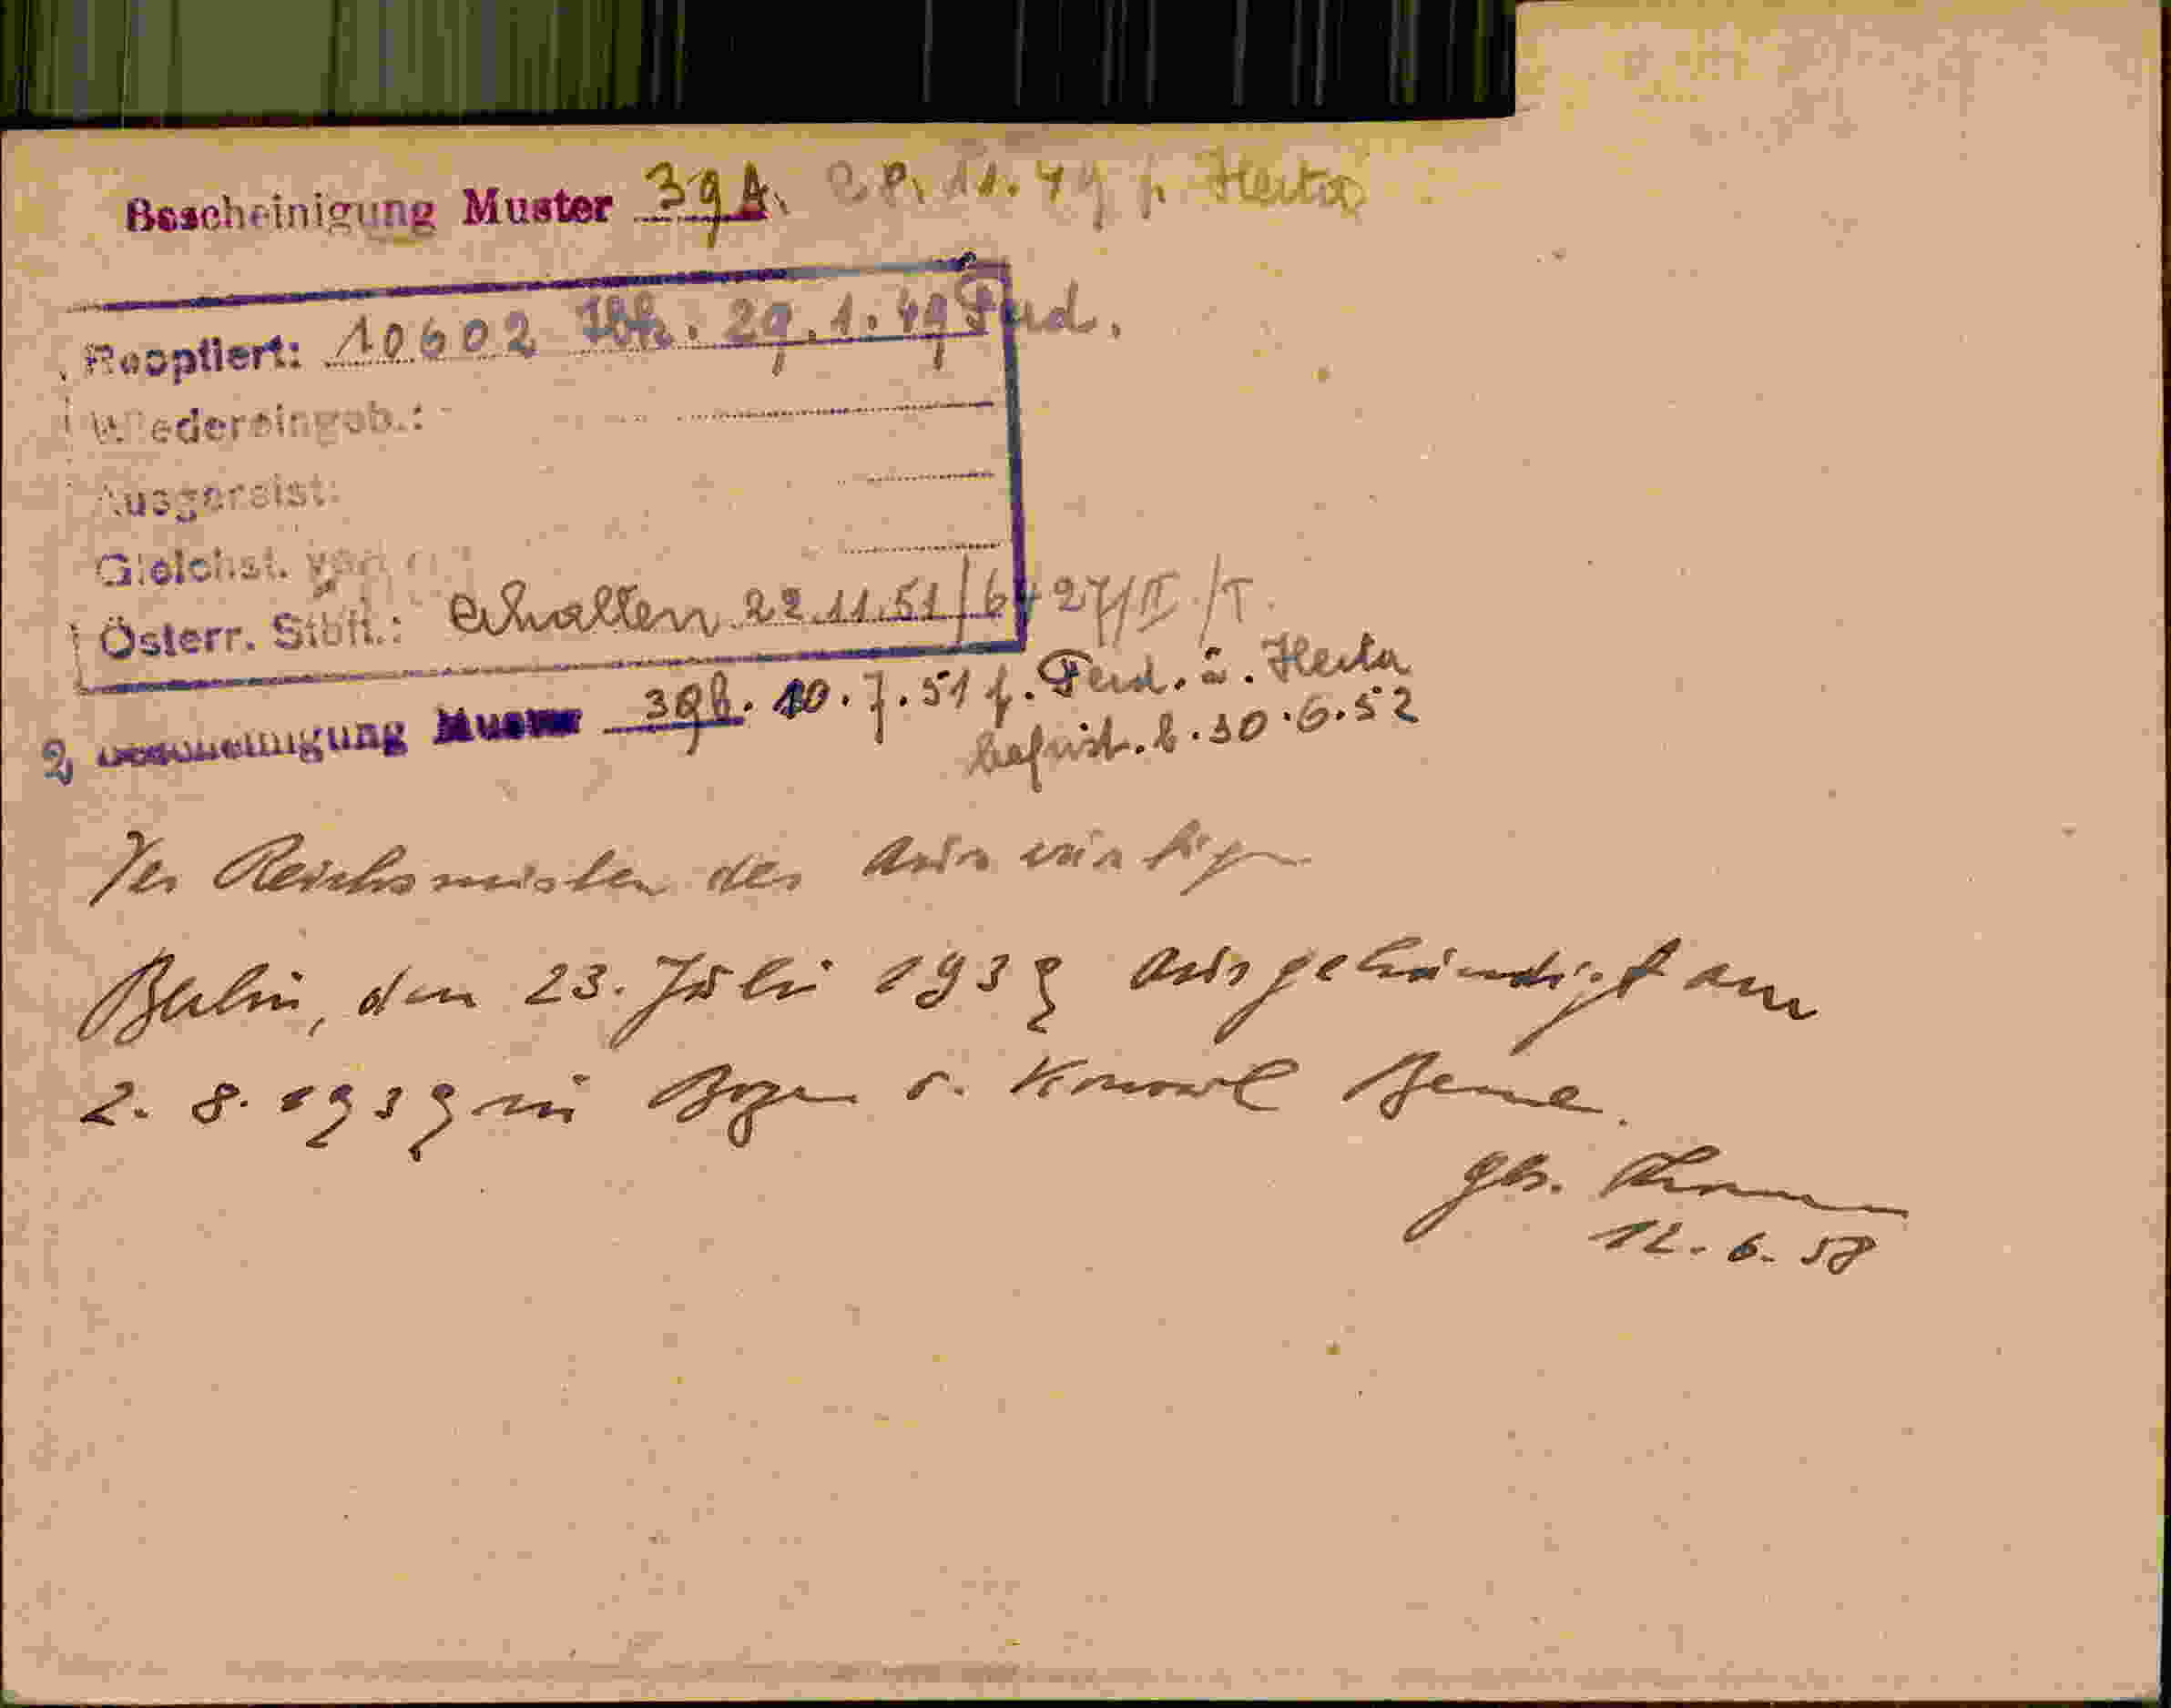 Bescheinigung Muster 39A. 28.11.49 f. Herta
Reoptiert: 10602 Ibk. 29.1.49 Ferd.
Wiedereingeb.:
Ausgereist:
Gleichst. 
Österr. Stbft.: erhalten 22.11.51/6427/II/T.
2, Bescheinigung Muster 39b. 10.7.51 f. Ferd. ü. Herta
befrist. b. 30.6.52
Der Reichsminister des Auswärtigen
Berlin, den 23. Juli 1939 ausgehändigt am
2. 8. 1939 in Bozen v. Konsul Bene.
gez.
12. 6. 58